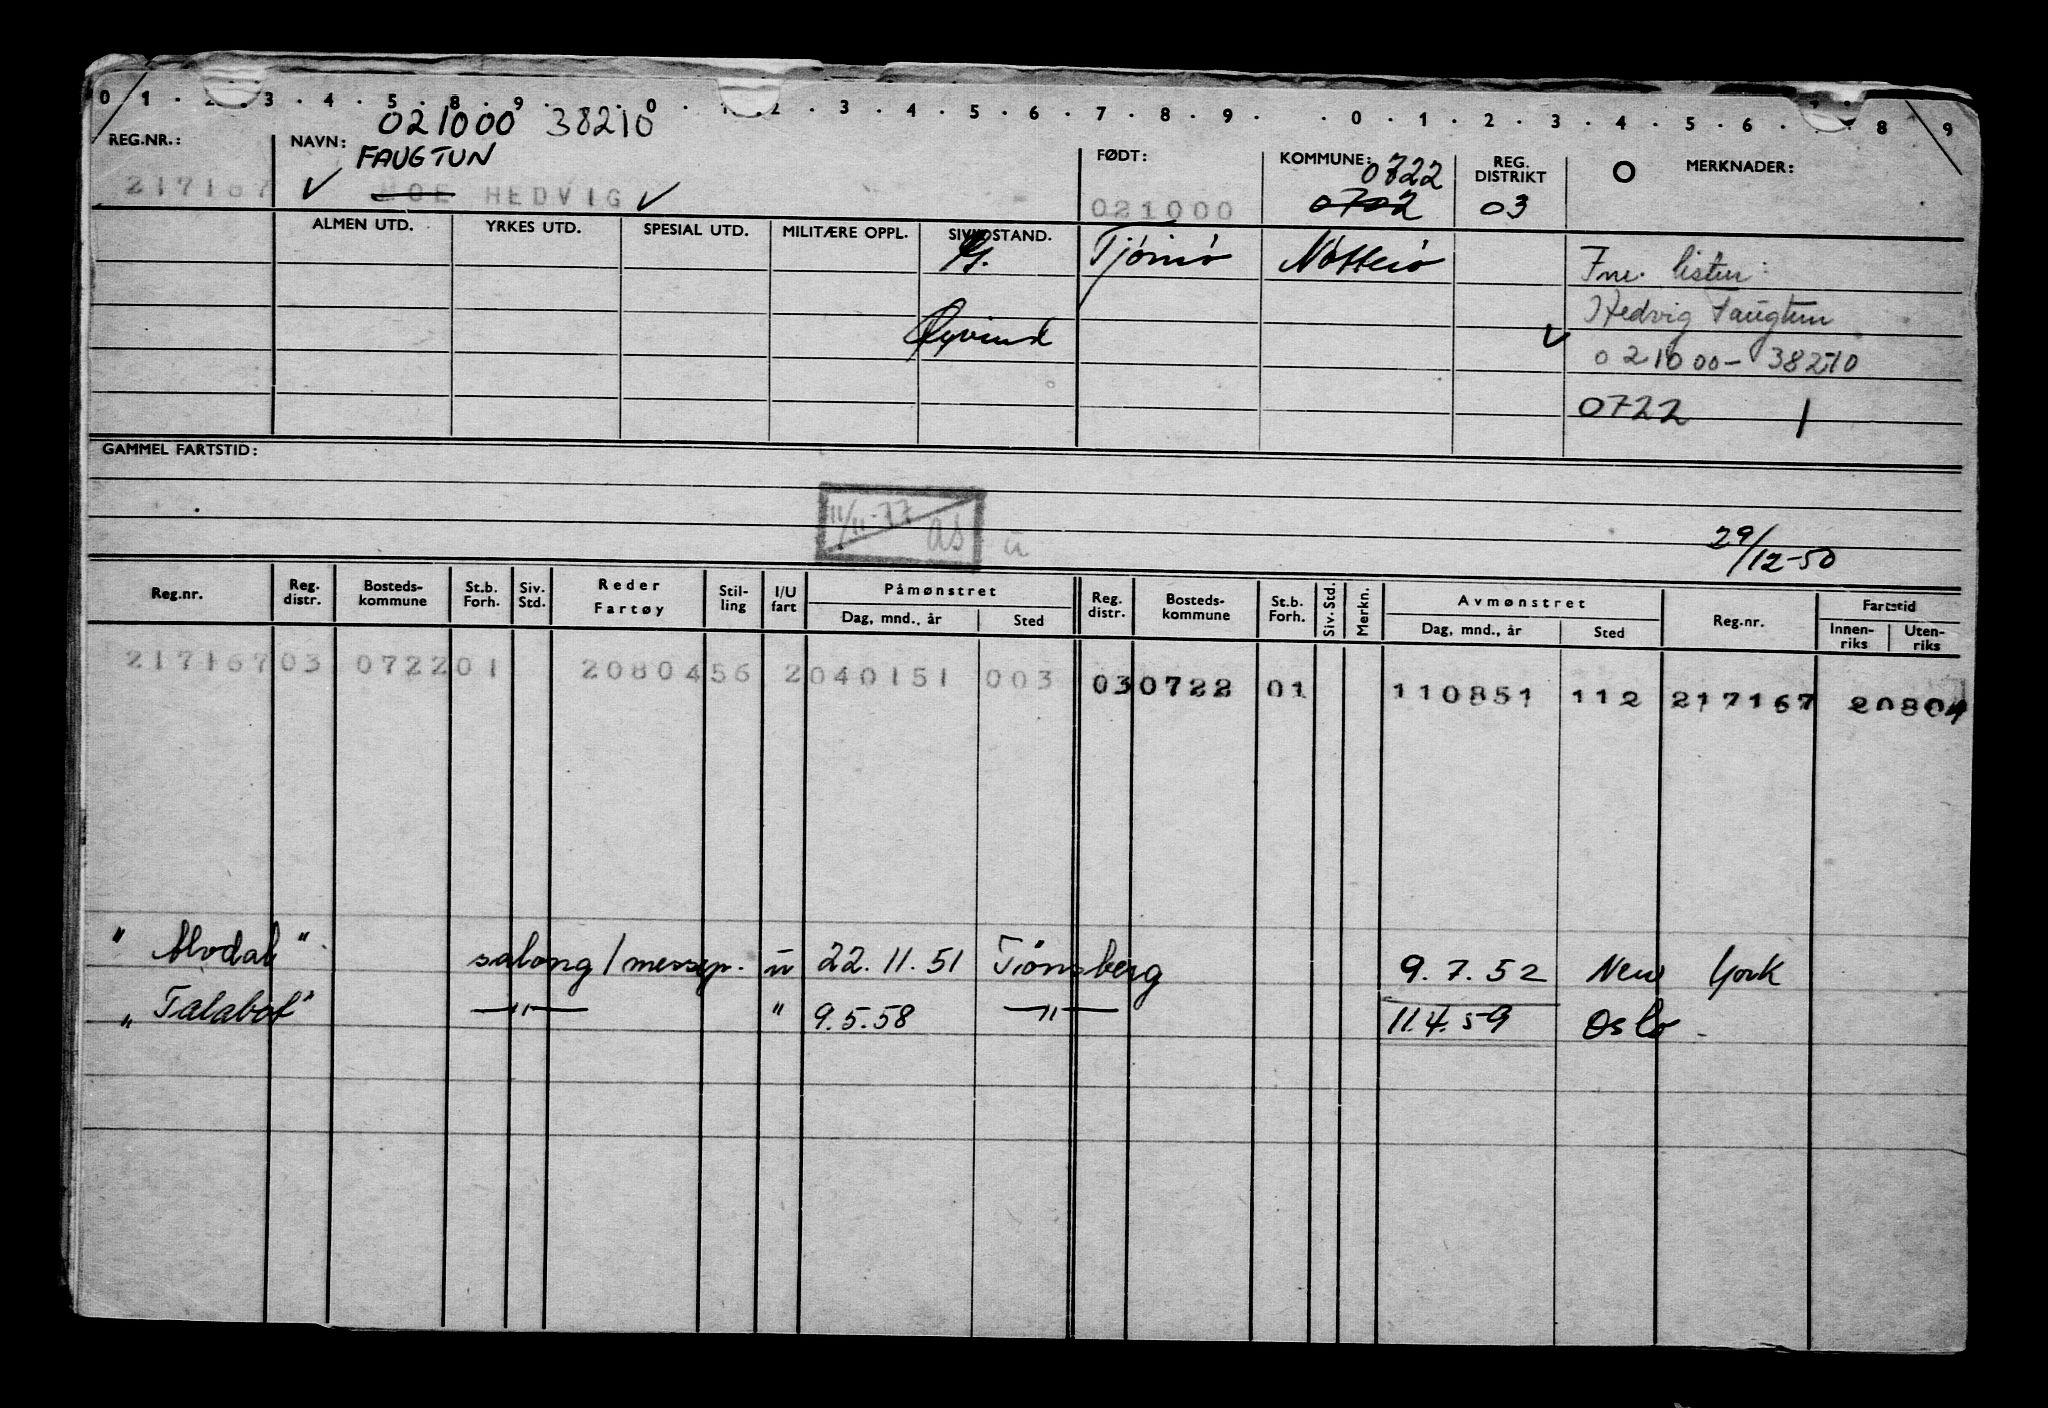 0 1 . 2 . 3 . 4 . 5 . 8 . 9 . . 0 . 1 . 2 . 3 . 4 . 5 . 6 . 7 . 8 . 9 . . 0 . 1 . 2 . 3 . 4 . 5 . 6 . . 8 9
021000 38210
REG.NR.: NAVN: FØDT: KOMMUNE: REG. DISTRIKT MERKNADER:
FAUGTUN 0722
217167 MOE HEDVIG 021000 0702 03
ALMEN UTD. YRKES UTD. SPESIAL UTD. MILITÆRE OPPL. SIVILSTAND.
G. Tjømø Nøtterø Fnr. listen:
Øyvind Hedvig Faugtun
021000-38210
0722 1
GAMMEL FARTSTID:
11/11-77 as u
29/12-50
Reg.nr. Reg. distr. Bosteds-kommune St.b. Forh. Siv. Std. Reder Fartøy Stil-ling I/U fart Påmønstret Dag, mnd., år Sted Reg. distr. Bosteds-kommune St.b. Forh. Siv. Std. Merkn. Avmønstret Dag, mnd., år Sted Reg.nr. Fartstid Innen-riks Uten-riks
217167 03 0722 01 2080456 2 040151 003 03 0722 01 110851 112 217167 20804
" Alvdal " salong/messep. u 22.11.51 Tønsberg 9.7.52 New York
" Talabot" —"— " 9.5.58 —"— 11.4.59 Oslo